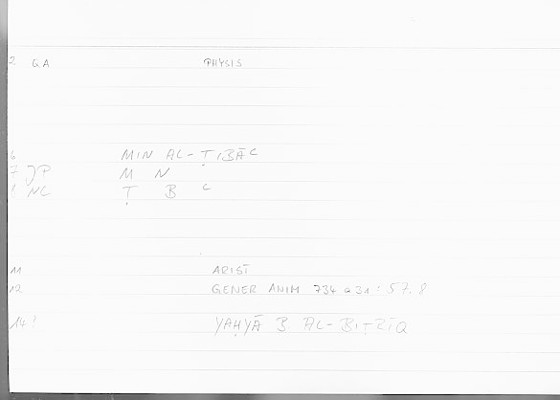 2 GA PHYSIS
6 MIN AL-ṬIBĀC
7 JP M N
1 NC Ṭ B C
11 ARIST
12 GENER ANIM 734 a 31 : 57.8
14! YAḤYĀ B AL-BIṬRĪQ